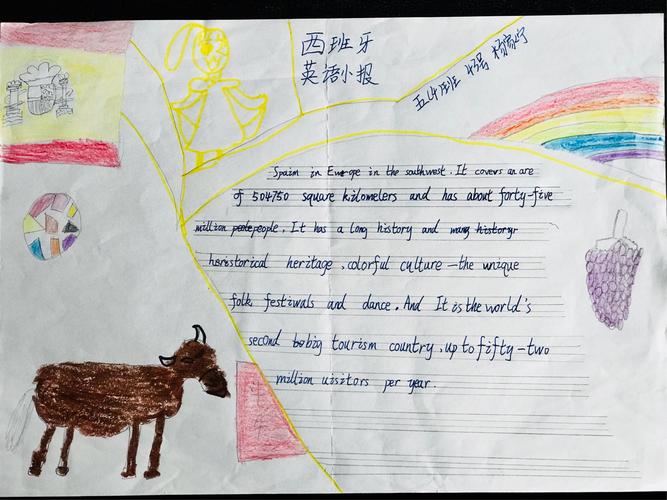 西班牙
英语小报
五4班 43号 杨
Spaim in Europe in the southwest. It covers an are
of 504750 square kilometers and has about forty-five
million people. It has a long history and many history
historical heritage, colorful culture — the unique
folk festivals and dance. And It is the world's
second big tourism country, up to fifty-two
million visitors per year.
斗牛